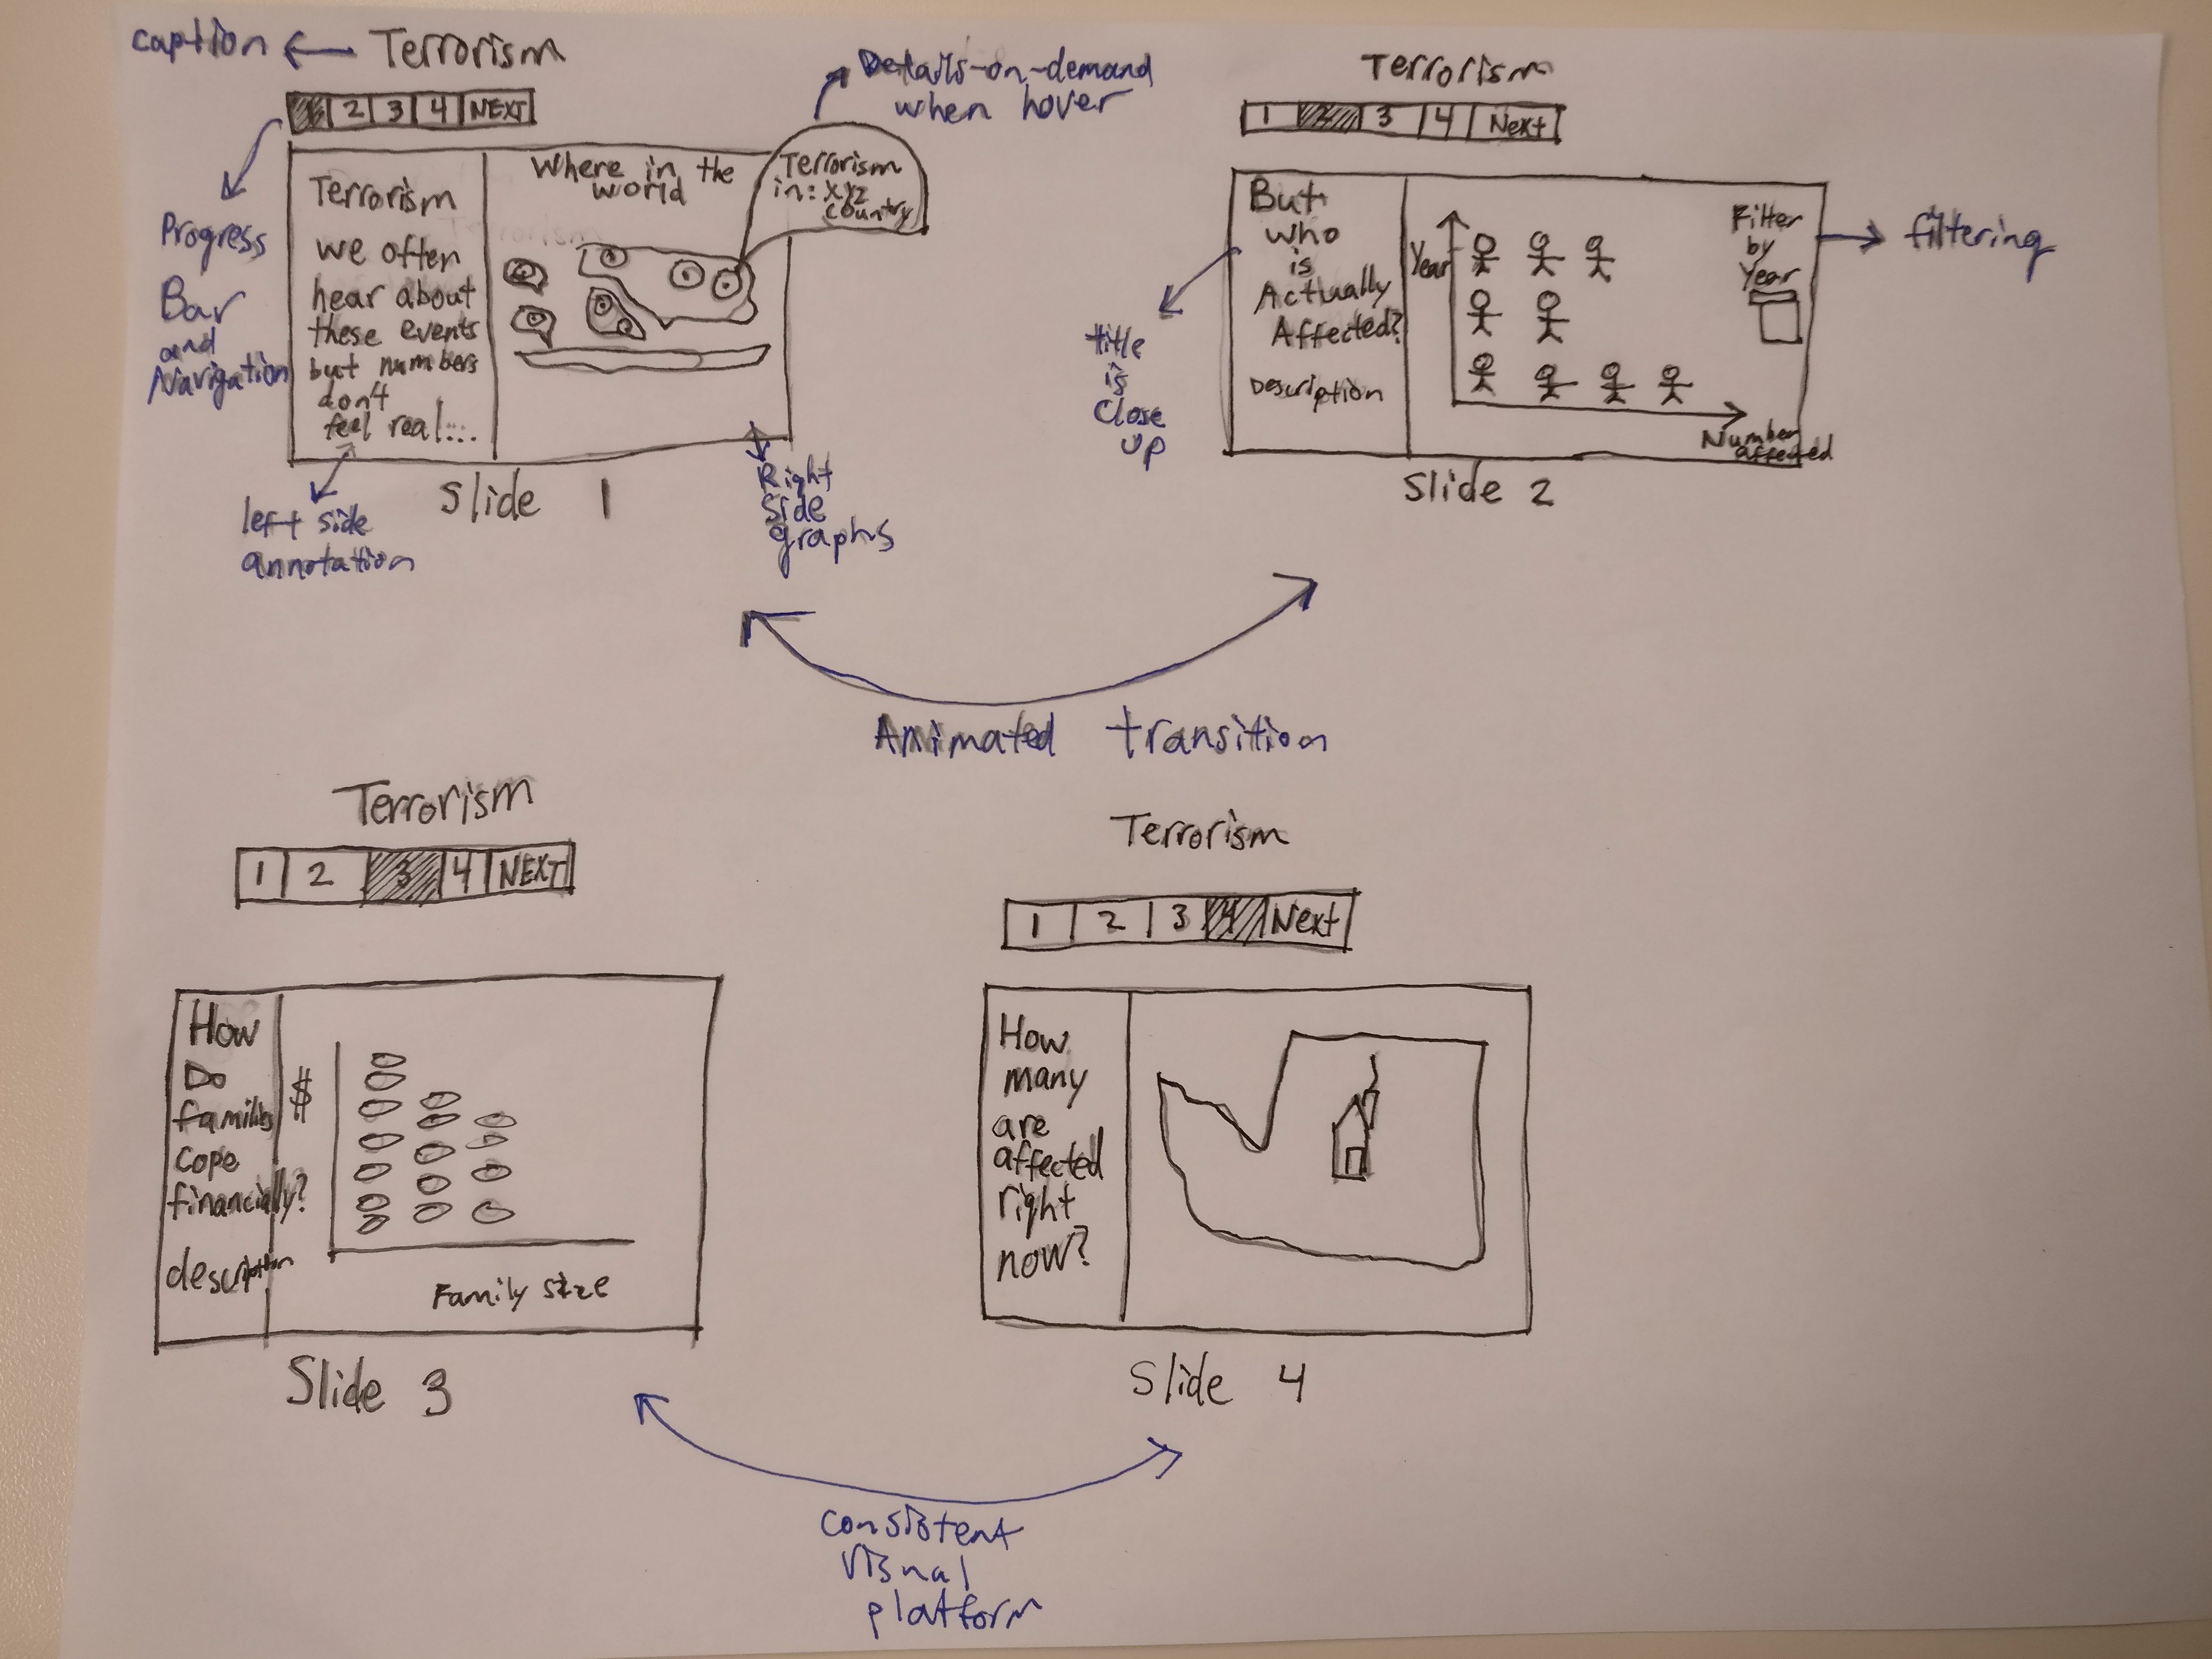 caption
Terrorism
1 2 3 4 NEXT
Details-on-demand
when hover
Progress
Bar
and
Navigation
Terrorism
we often
hear about
these events
but numbers
don't
feel real...
Where in the
world
Terrorism
in: xyz
country
left side
annotation
Slide 1
Right
side
graphs
Terrorism
1 2 3 4 Next
But
who
is
Actually
Affected?
Description
title
is
Close
up
Year
Filter
by
Year
Number
affected
filtering
Slide 2
Animated transition
Terrorism
1 2 3 4 NEXT
How
Do
families
Cope
financially?
description
$
Family size
Slide 3
Terrorism
1 2 3 4 Next
How
many
are
affected
right
now?
Slide 4
Consistent
visual
platform